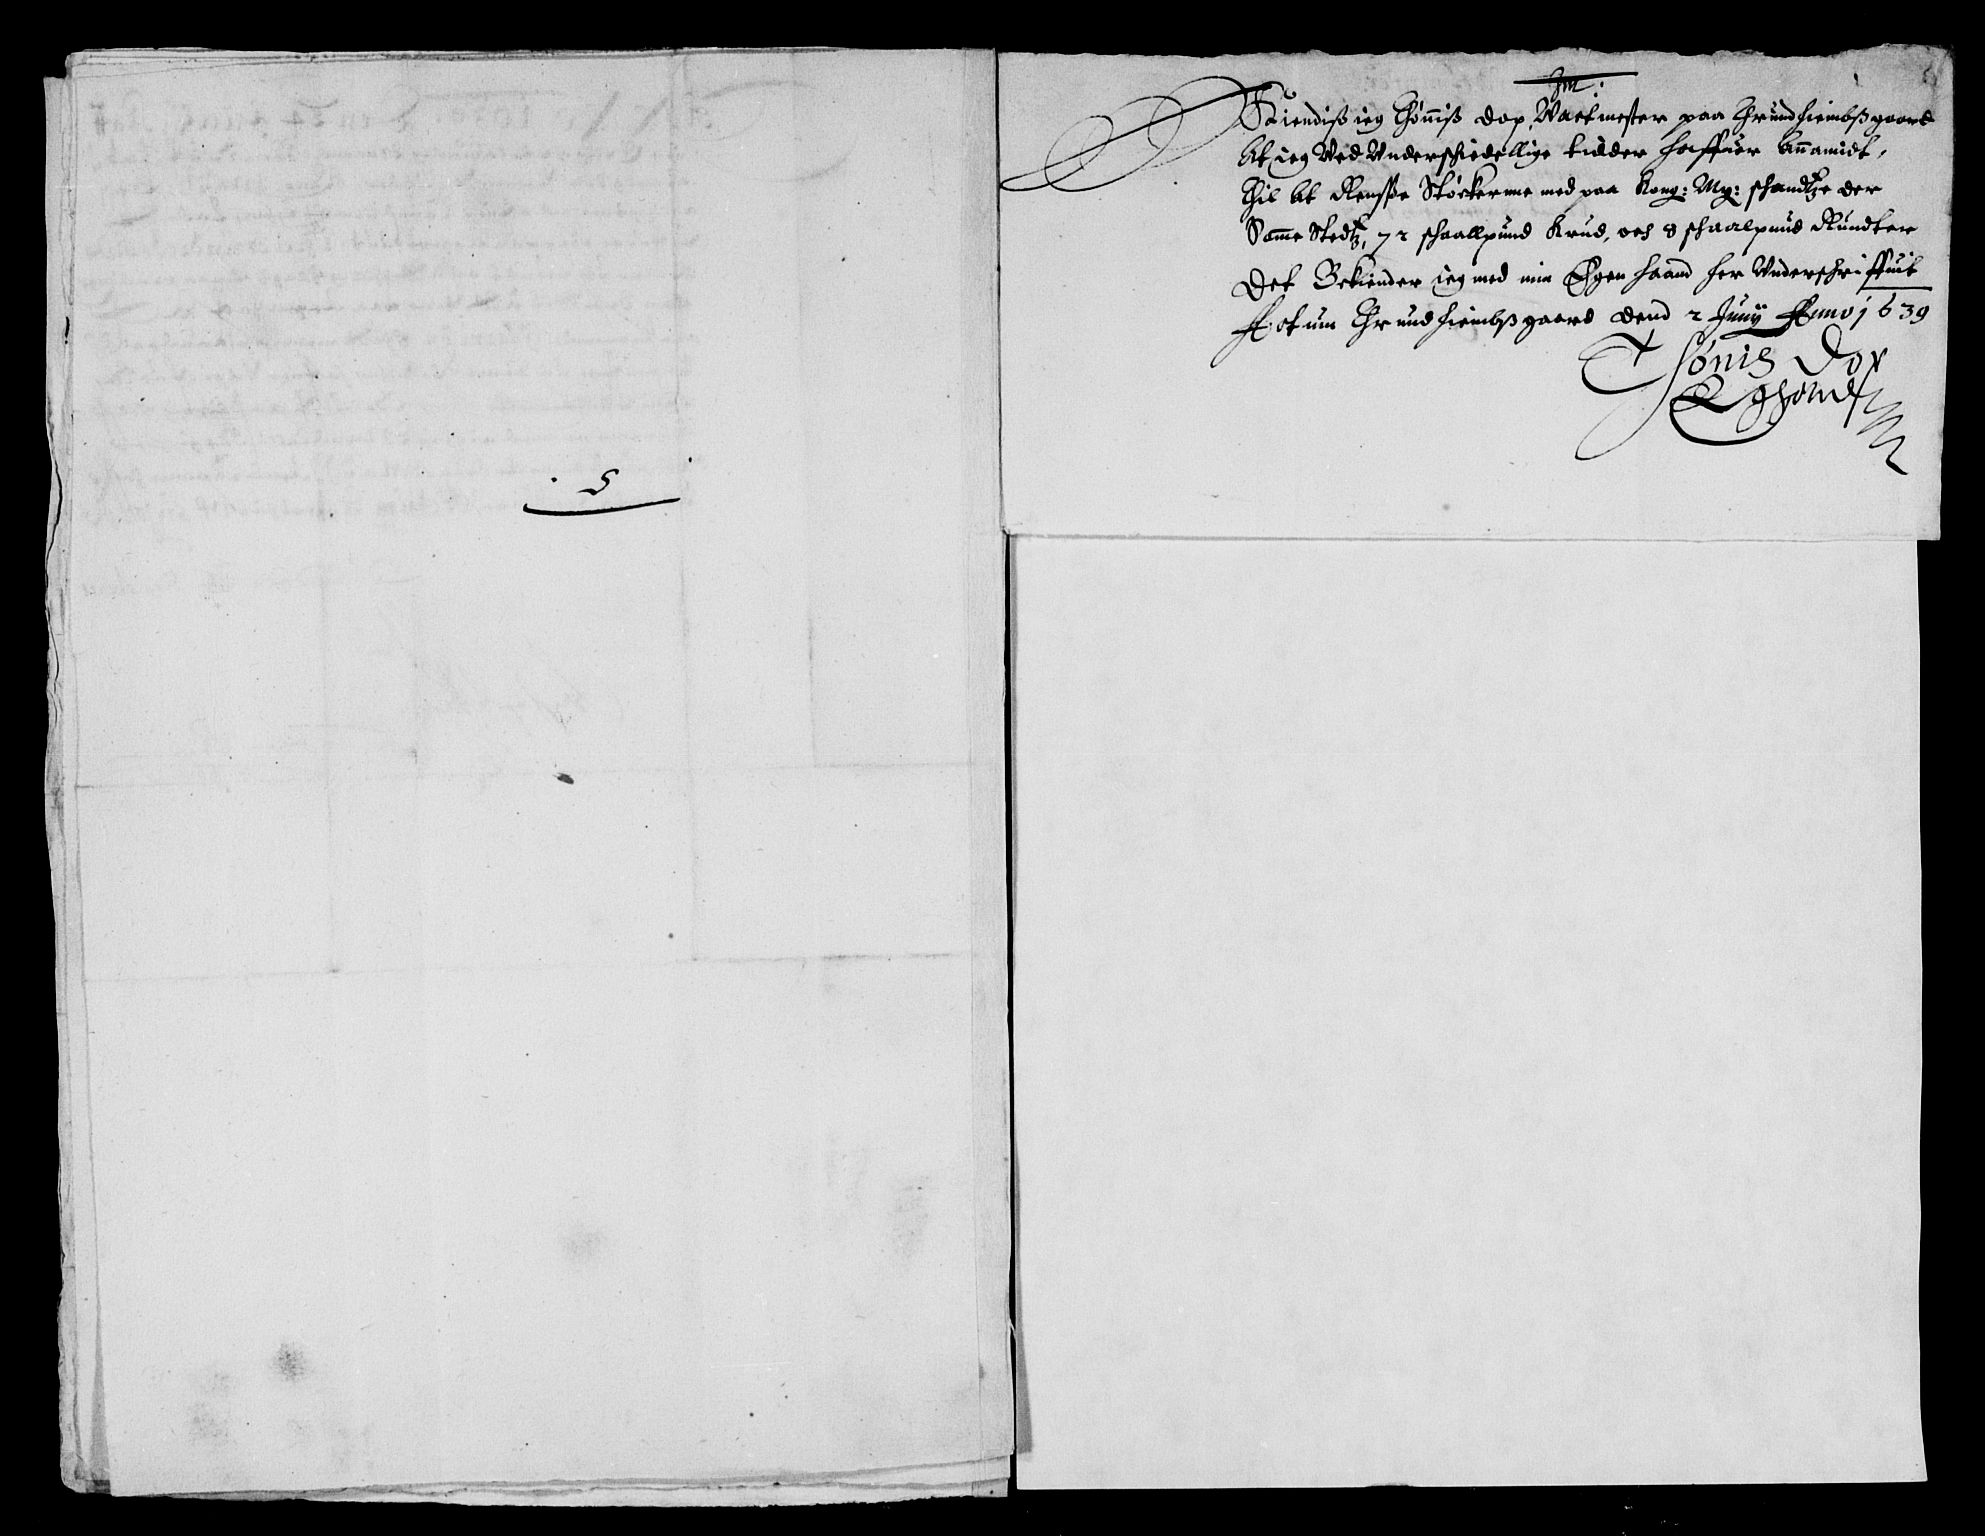 5
Jm:
Kiendiß ieg Thönniß Dop, Wactmester paa Thrundhiembßgaard
At ieg Ved Vnderschiedellige tidder haffuer Annamidt,
Thil At Renssße Støckerne med paa Kong: My: schandtze der
Samme Stedtz, 72 schaallpund Krud, och 8 schaalpund Rundter
Det Bekiender ieg med min Egen haand her Vnderschriffuit
Actum Thrundhiembßgaard Dend 2 Junij Anno 1639
Thönis Dop
Eghandt